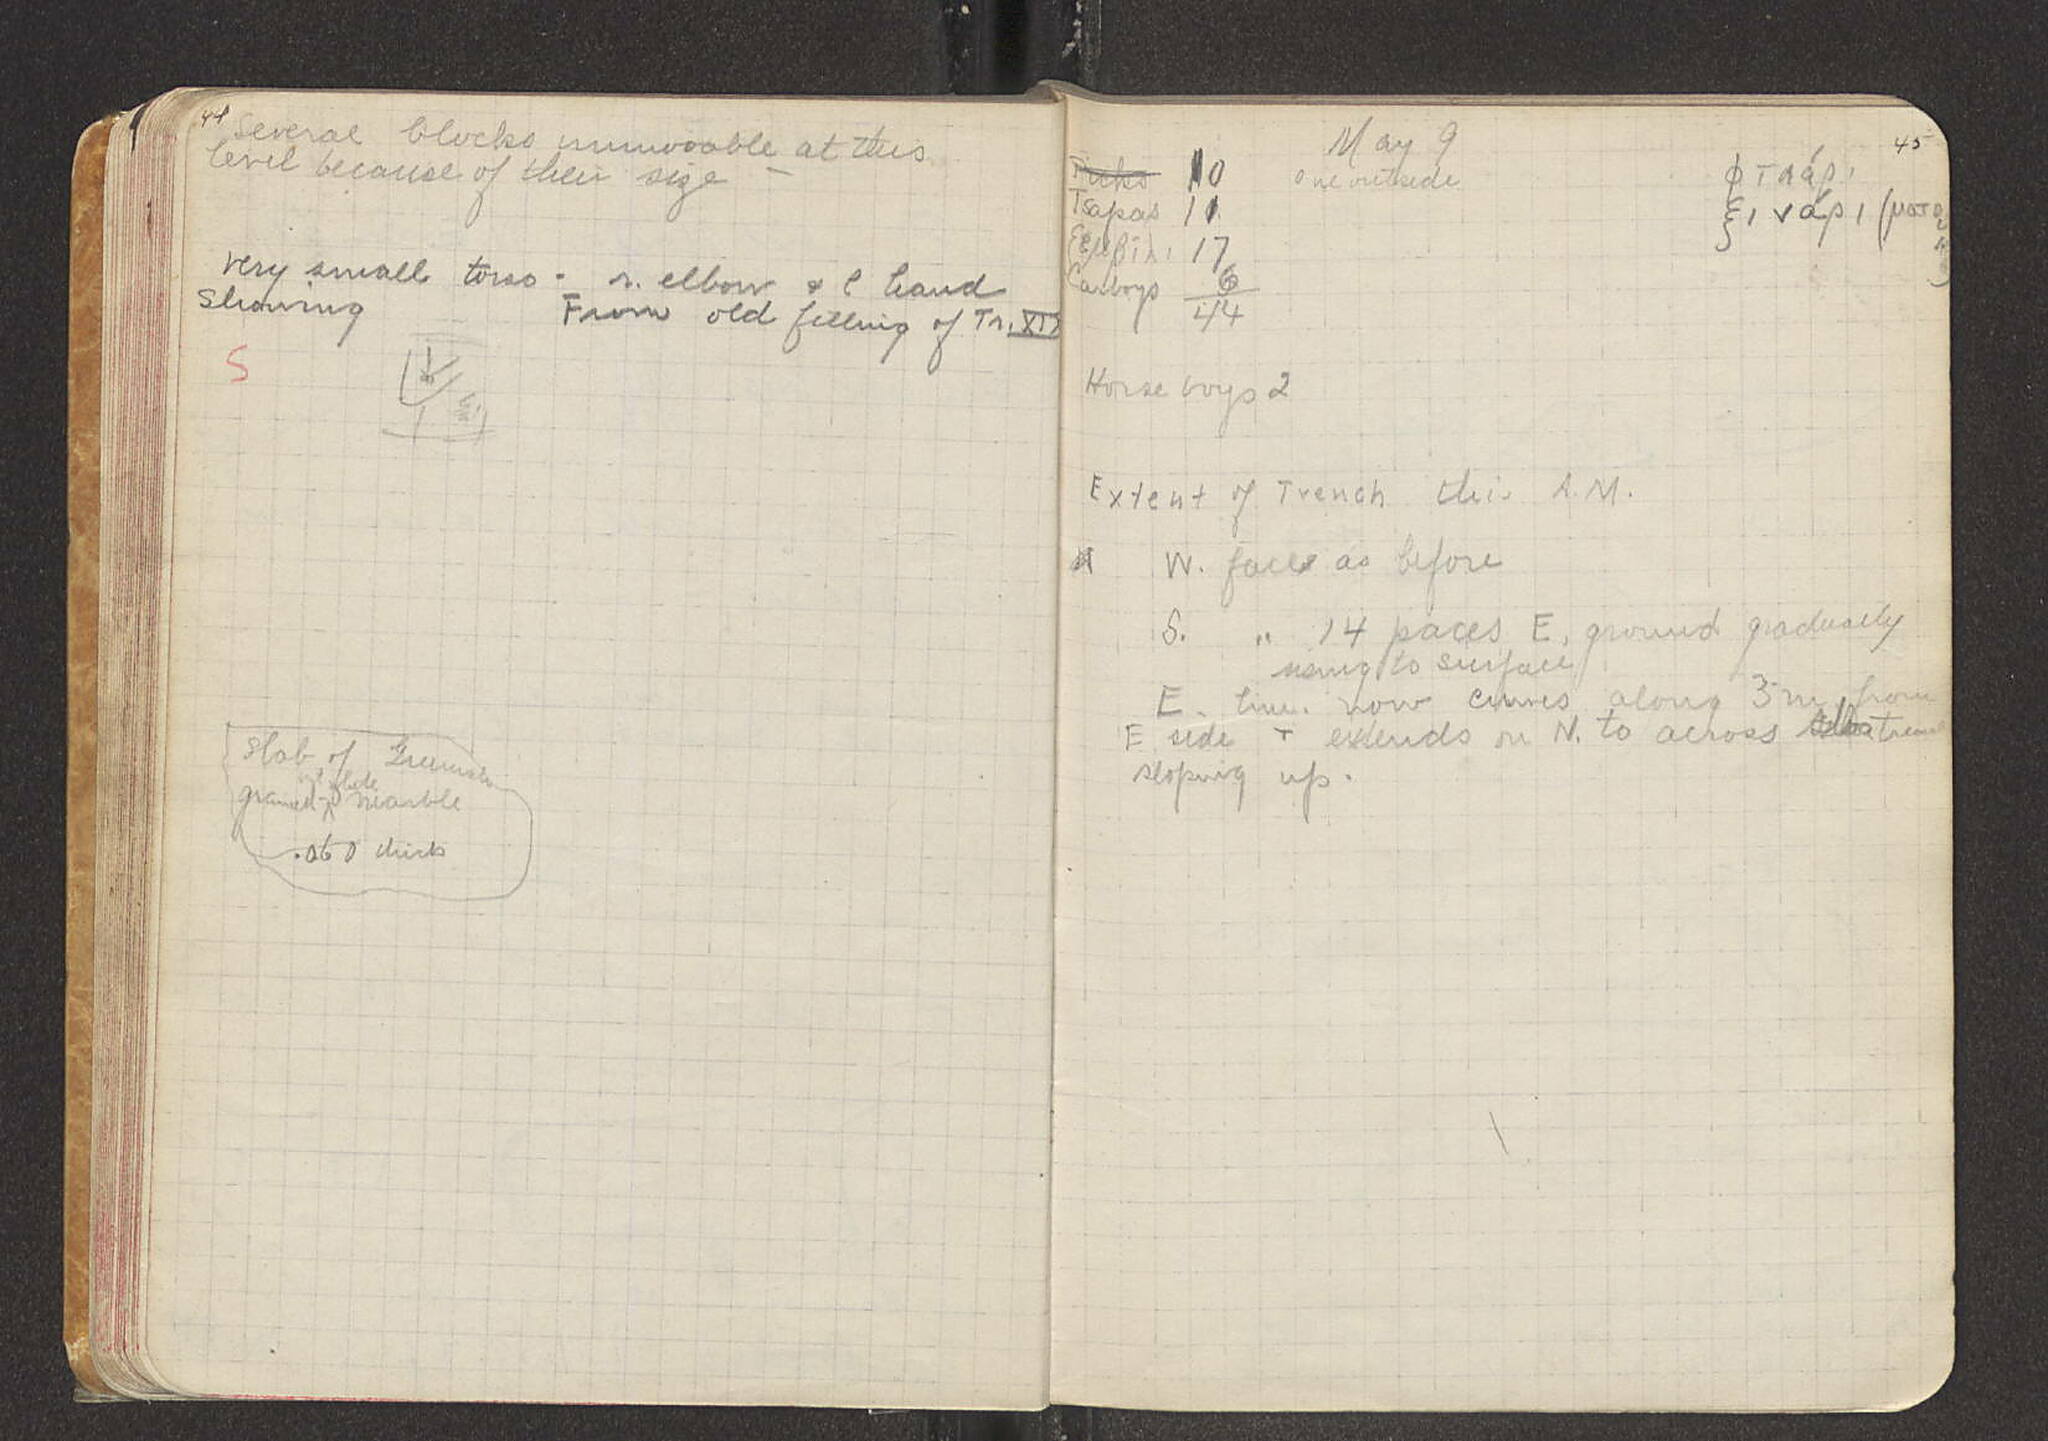 44
Several blocks immovable at this
level because of their size –
Very small torso - r. elbow & l hand
showing From old filling of Tr. XIX
S
Slab of
grained white marble
.060 thick
45
May 9
Picks 10 One outside
Tsapas 11
17
Carboys 6
44
φτιάρι
ξινάρι
Horse boys 2
Extent of Trench this A.M.
W. face as before
S. " 14 paces E. ground gradually
rising to surface
E. line now curves along 3 m from
E side + extends on N. to across trench
sloping up.